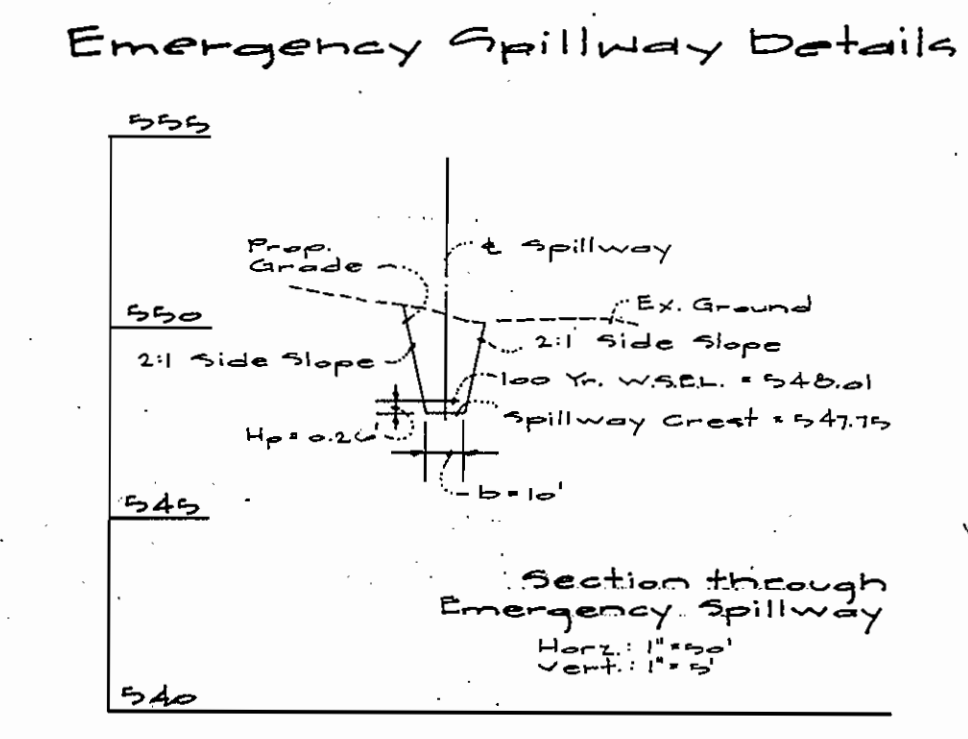 Emergency Spillway Details
555
Prop.
Grade
℄ Spillway
550
Ex. Ground
2:1 Side Slope
2:1 Side Slope
100 Yr. W.S.E.L. = 548.01
Spillway Crest = 547.75
Hp = 0.26
b = 10'
545
Section through
Emergency Spillway
Horz.: 1" = 50'
Vert.: 1" = 5'
540